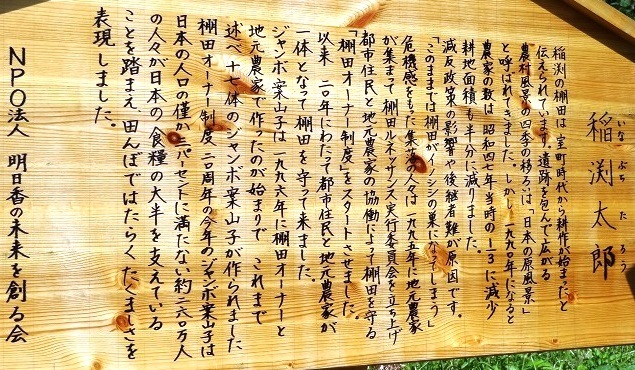 稲渕太郎
いなぶちたろう
稲渕の棚田は、室町時代から耕作が始まったと
伝えられています。遺跡を包んで広がる
農村風景の四季の移ろいは、「日本の原風景」
と呼ばれてきました。しかし一九九〇年になると
農家の数は昭和四十年当時の1-3に減少
耕地面積も半分に減りました。
減反政策の影響や後継者難が原因です。
「このままでは棚田がイノシシの巣になってしまう」
危機感をもった集落の人々は一九九五年に地元農家
が集まって棚田ルネッサンス実行委員会を立ち上げ
都市住民と地元農家の協働によって棚田を守る
「棚田オーナー制度」をスタートさせました。
以来 二〇年にわたって都市住民と地元農家が
一体となって棚田を守って来ました。
ジャンボ案山子は一九九六年に棚田オーナーと
地元農家で作ったのが始まりで これまで
述べ十七体のジャンボ案山子が作られました
棚田オーナー制度二〇周年の今年のジャンボ案山子は
日本の人口の僅か二パーセントに満たない約二六〇万人
の人々が日本の食糧の大半を支えている
ことを踏まえ田んぼではたらくたくましさを
表現しました。
NPO法人 明日香の未来を創る会